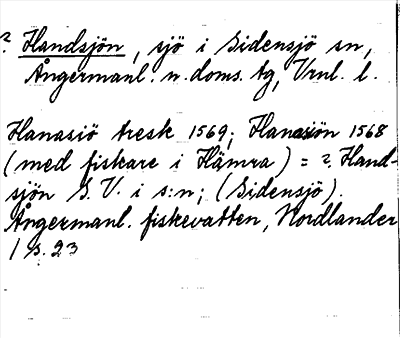 ? Handsjön, sjö i Sidensjö sn,
Ångermanl. n. doms. tg, Vrnl. l.
Hanasiö tresk 1569; Hanasiön 1568
(med fiskare i Hämra) = ? Hand-
sjön S. V. i s:n; (Sidensjö).
Ångermanl. fiskevatten, Nordlander
1 s. 23